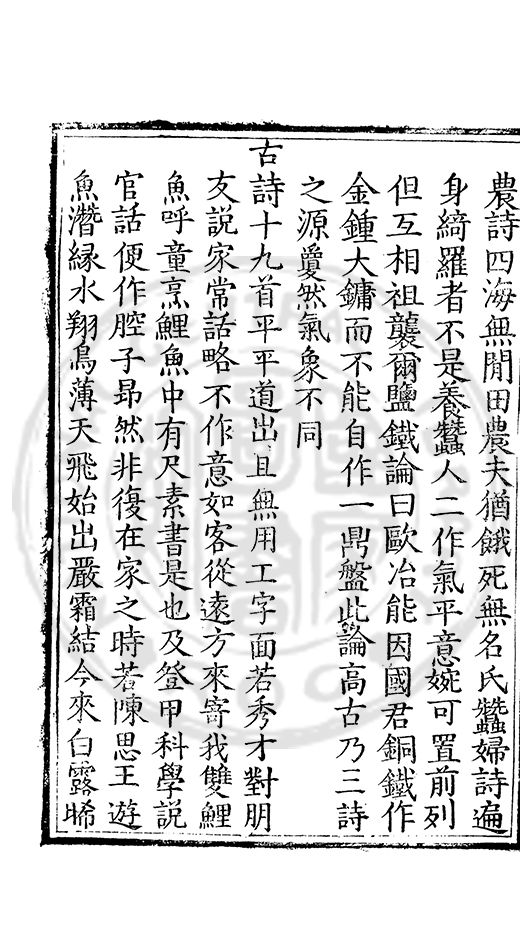 農詩四海無閒田農夫猶餓死無名氏蠶婦詩遍
身綺羅者不是養蠶人二作氣平意婉可置前列
但互相祖襲爾鹽鐵論曰歐冶能因國君銅鐵作
金鍾大鏞而不能自作一鼎盤此論高古乃三詩
之源夐然氣象不同
古詩十九首平平道出且無用工字面若秀才對朋
友說家常話略不作意如客從遠方來寄我雙鯉
魚呼童烹鯉魚中有尺素書是也及登甲科學說
官話便作腔子昂然非復在家之時若陳思王遊
魚潛綠水翔鳥薄天飛始出嚴霜結今來白露晞